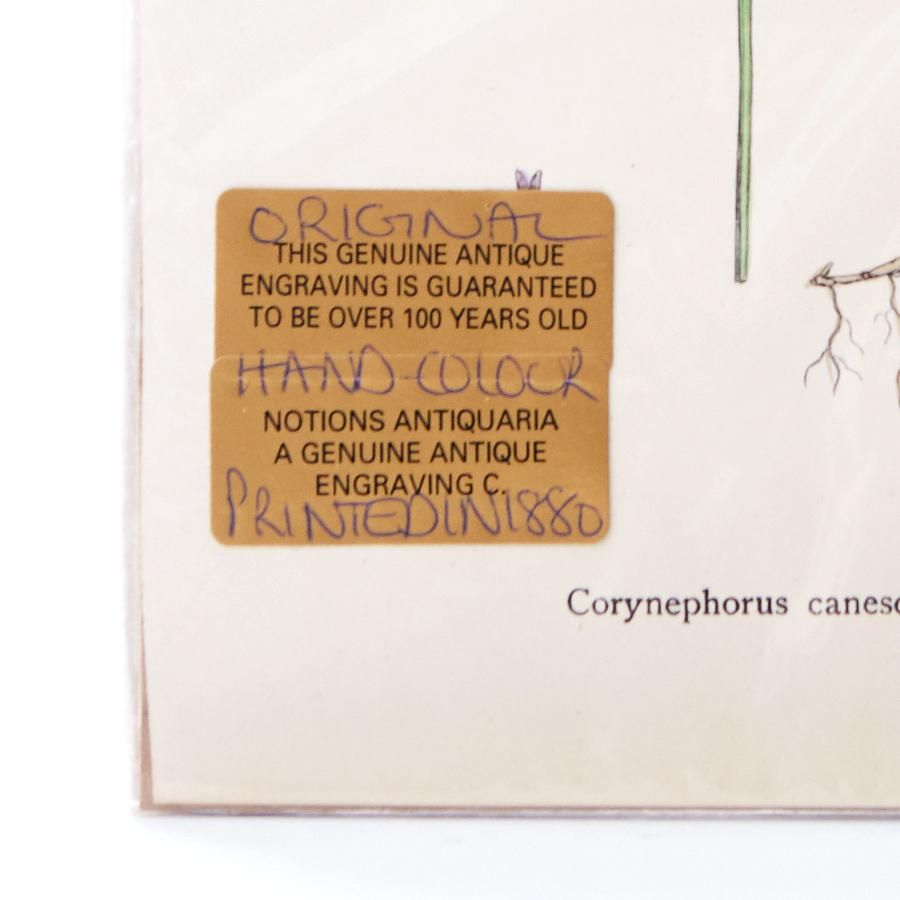 ORIGINAL
THIS GENUINE ANTIQUE
ENGRAVING IS GUARANTEED
TO BE OVER 100 YEARS OLD
HAND-COLOUR
NOTIONS ANTIQUARIA
A GENUINE ANTIQUE
ENGRAVING C.
PRINTED IN 1880
Corynephorus canesc